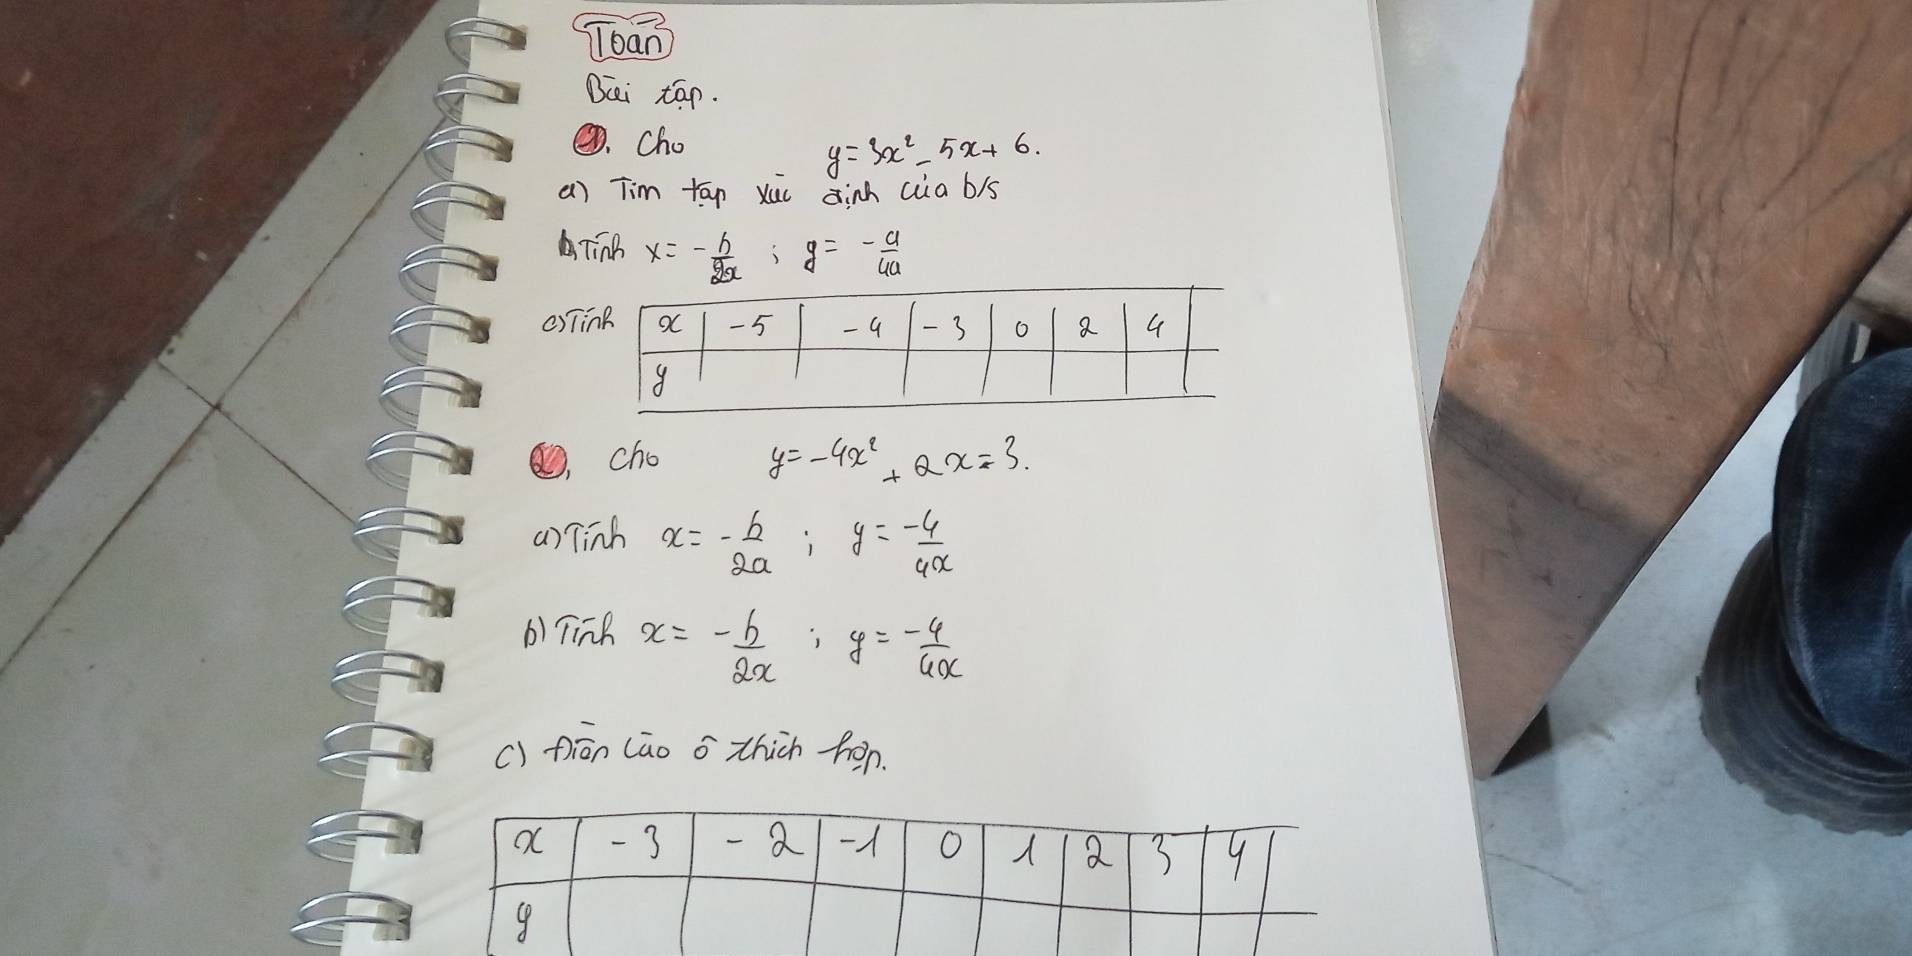 Toán
Bài tập.
1. Cho y = 3x² - 5x + 6.
a) Tìm tập xác định của b/s
b) Tính x = -b/2x ; y = -a/4a
c) Tính
x | -5 | -4 | -3 | 0 | 2 | 4
y
2, cho y = -4x² + 2x = 3.
a) Tính x = -b/2a ; y = -4/4x
b) Tính x = -b/2x ; y = -4/4x
c) Điền vào ô thích hợp.
x | -3 | -2 | -1 | 0 | 1 | 2 | 3 | 4
y